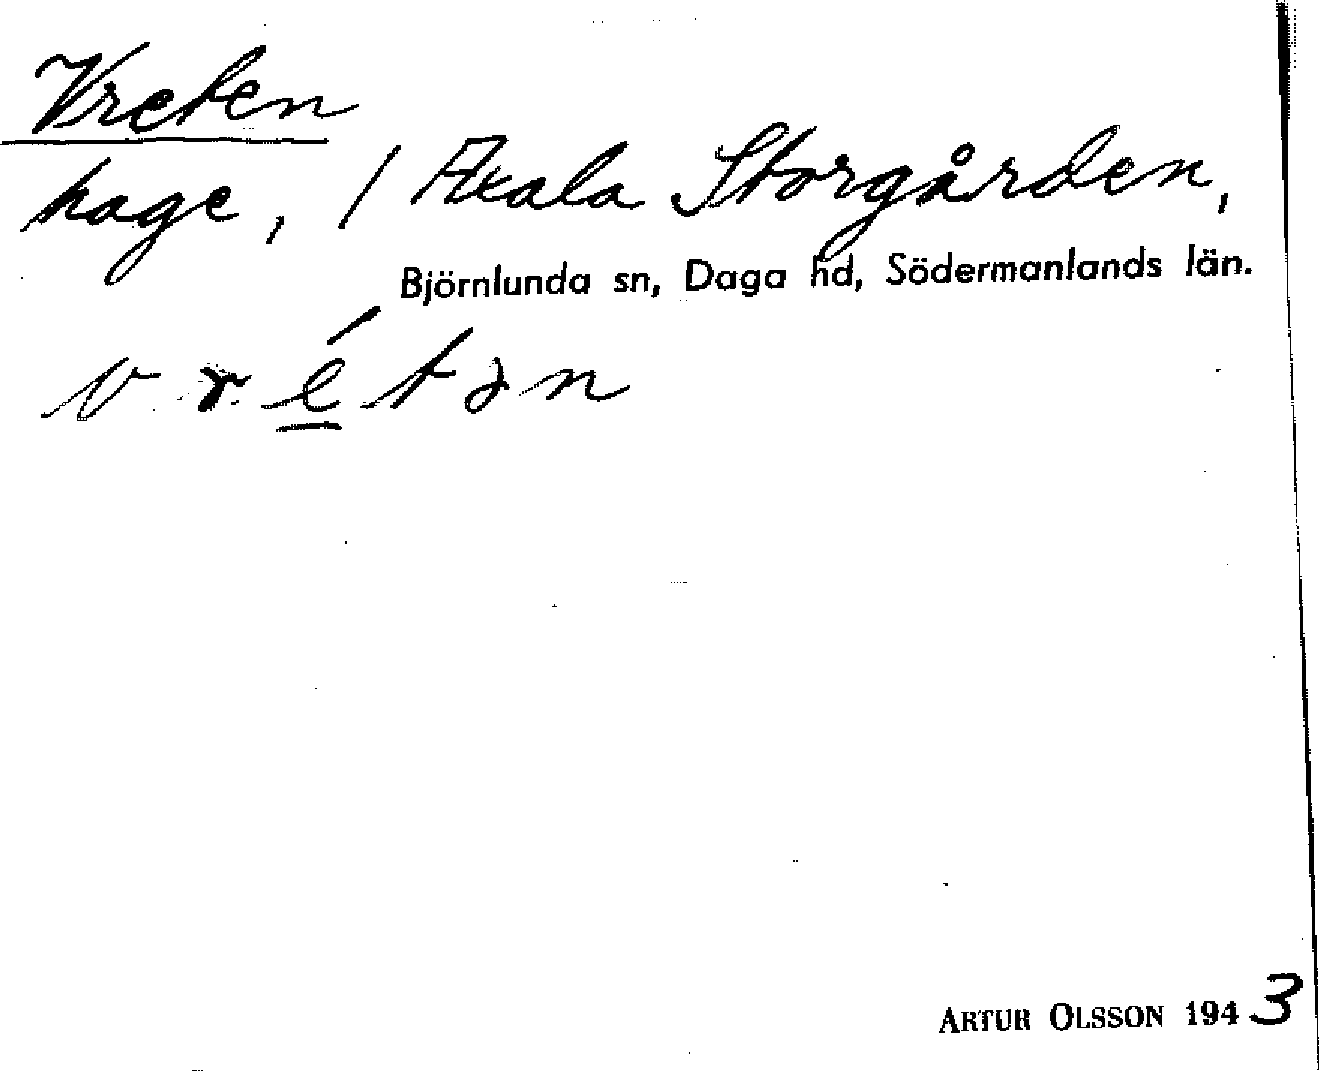 Vreten
hage, / Axala Storgården,
Björnlunda sn, Daga hd, Södermanlands län.
vrétən
ARTUR OLSSON 1943